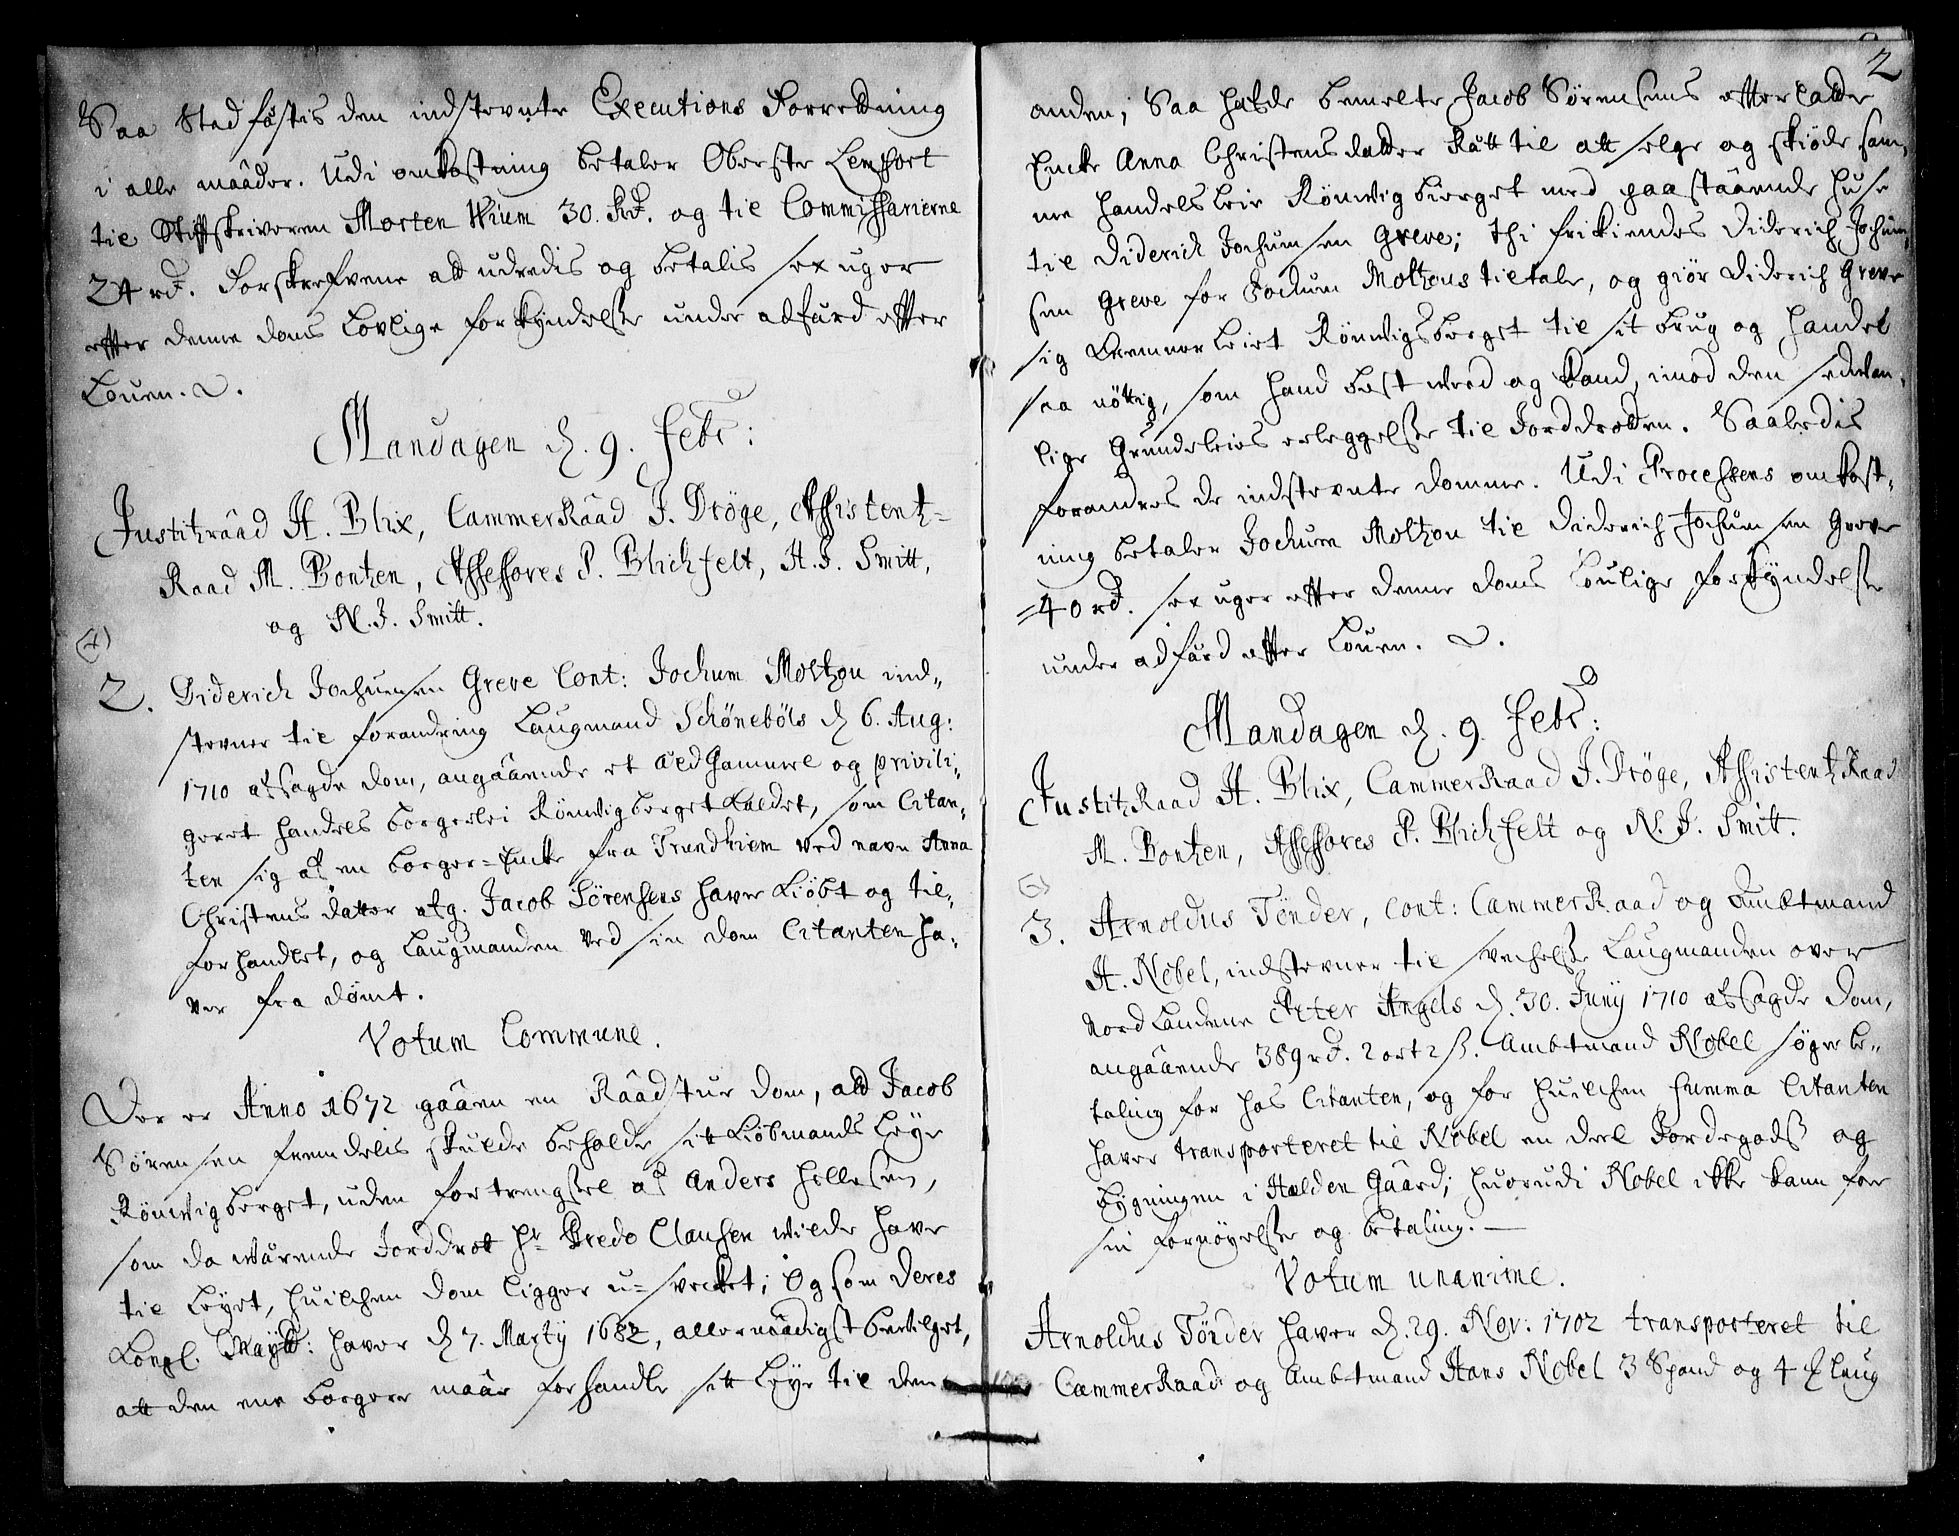 Saa Stadfæstis den indstevnte Executions Forretning
i alle maader. Udi omkostning betaler Oberste Lenfort
til Stiftskriveren Morten Wium 30. Rd. og til Commissarierne
24 rd. Forskrefvene att udredis og betalis sex uger
efter denne doms Lovlige forkyndelse under adfærd effter
Louen.
Mandagen d. 9. Febr:
Justitzraad H. Blix, CammerRaad J. Dröge, Assistentz-
Raad M. Bontzen, Assessores P. Blichfelt, H. J. Smitt,
og N. J. Smitt.
2. Diderich Jochumsen Greve Cont: Jochum Moltzou ind-
stevner til forandring Laugmand Schönebøls d. 6. Aug:
1710 afsagde dom, angaaende et aldgammel og privili-
geret handels borgerlei Rönwigberget kaldet, som Citan-
ten sig af en borger-Encke fra Trundhiem ved navn Anna
Christens datter afg. Jacob Sörensens haver kiöbt og til-
forhandlet, og Laugmanden ved sin dom Citanten ha-
ver fra dömt.
Votum Commune.
Der er Anno 1672 gaaen en Raadstue dom, att Jacob
Sörensen fremdelis skulde beholde sit Kiöbmands Leye
Rönwigberget, uden fortrengsel af Anders Hellesen,
som da wärende Jorddrott Hr Predo Clausen wilde have
til Leyet, huilchen dom ligger u-svecket; Og som deres
Kongl. Mayst: haver d. 7. Martij 1682, allernaadigst bevilget,
att den ene borgere maa forhandle sit Leye til den
2
anden; Saa hafde bemelte Jacob Sörensens efterladte
Encke Anna Christensdatter Rätt til att selge og skiöde sam-
me handelsleie Rönwigbierget med paastaaende huse
til Diderich Jochumsen Greve; thi frikiendes Diderich Jochum-
sen Greve for Jochum Moltzous tiltale, og giör Diderich Greve
sig bemelte Leiet Rönwigsberget til sit brug og handel
saa nöttig, som hand best weed og kand, imod den sedvan-
lige Grundeleies erleggelse til Jorddrotten. Saaledis
forandres de indstevnte domme. Udi Processens omkost-
ning betaler Jochum Moltzou til Diderich Jochumsen Greve
40 rd. sex uger effter denne doms Loulige forkyndelse
under adfärd effter Louen.
Mandagen d. 9. Febr:
JustitzRaad H. Blix, CammerRaad J. Dröge, AssistentzRaad
M. Bontzen, Assessores P. Blichfelt og N. J. Smitt.
3. Arnoldus Tönder, Cont: CammerRaad og Ambtmand
H. Nobel, indstevner til svechelse Laugmanden over
Nordlandene Peter Angels d. 30. Junij 1710 afsagde dom,
angaaende 389 rd. 2 ort 2 ß. Ambtmand Nobel söger be-
taling for hos Citanten, og for huilchen summa Citanten
haver transporteret til Nobel en deel Jordegods og
bygningen i Halden Gaard; huorudi Nobel ikke kann faae
sin fornöyelse og betaling.
Votum unanime.
Arnoldus Tönder haver d. 29. Nov: 1702 transporteret til
CammerRaad og Ambtmand Hans Nobel 3 Spand og 4